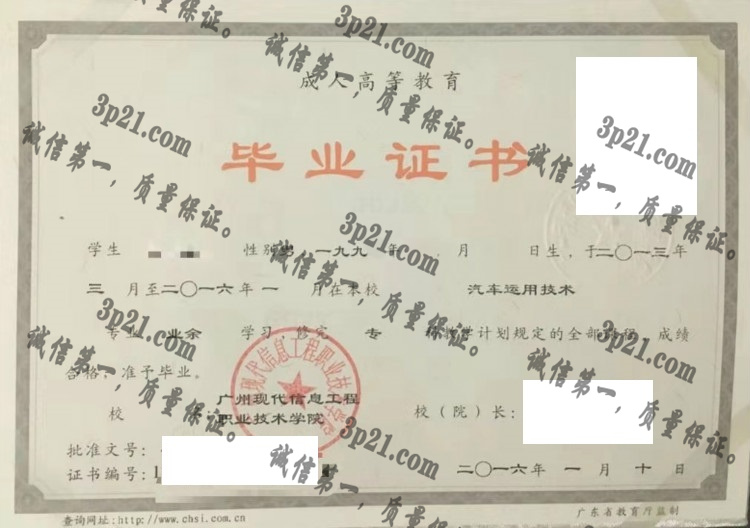 成人高等教育
毕业证书
学生 性别 男 一九九 年 月 日生，于二〇一三年
三 月至二〇一六年 一 月在本校 汽车运用技术
专业 业余 学习 修完 专 科教学计划规定的全部课程，成绩
合格，准予毕业。
校 广州现代信息工程职业技术学院 校（院）长：
批准文号：
证书编号：1
二〇一六年 一 月 十 日
查询网址:http://www.chsi.com.cn
广东省教育厅监制
现代信息工程职业技
3p21.com
诚信第一，质量保证。
3p21.com
诚信第一，质量保证。
3p21.com
诚信第一，质量保证。
3p21.com
诚信第一，质量保证。
3p21.com
诚信第一，质量保证。
3p21.com
诚信第一，质量保证。
3p21.com
诚信第一，质量保证。
诚信第一，质量保证。